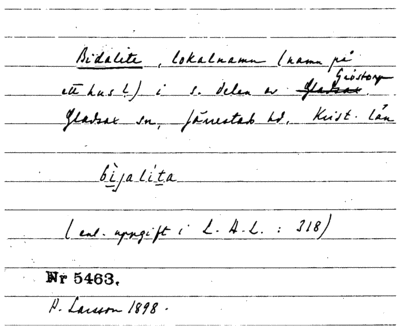 Bidalite, lokalnamn (namn på
ett hus!) i s. delen av Gladsax Gröstorp
Gladsax sn, Järrestad hd, Krist. län
bijalita
(enl. uppgift i L.A.L. : 318)
Nr 5463.
P. Larsson 1898.